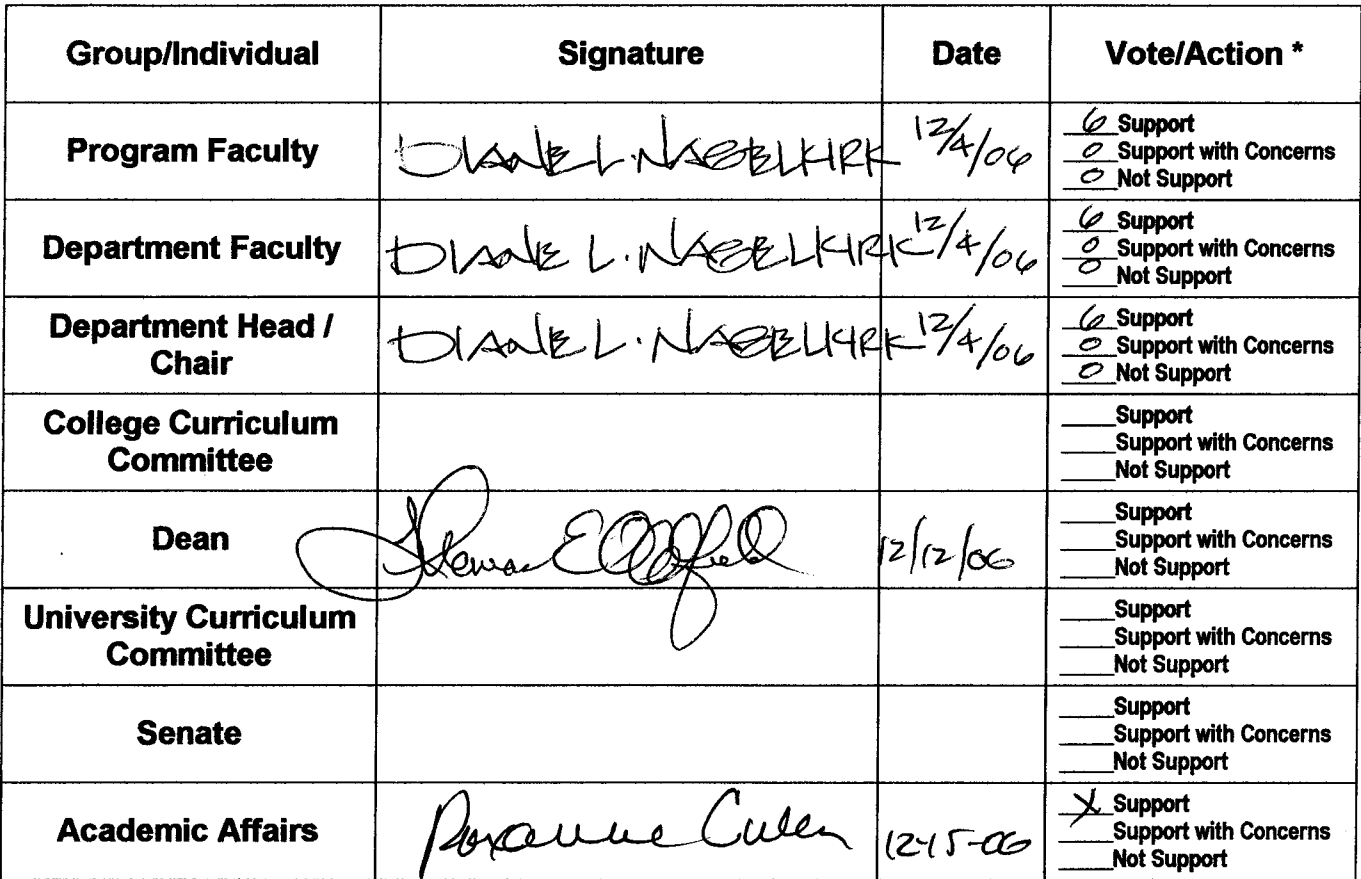 Group/Individual Signature Date Vote/Action *
Program Faculty DIANE L. NAGELKIRK 12/4/06 6 Support
0 Support with Concerns
0 Not Support
Department Faculty DIANE L. NAGELKIRK 12/4/06 6 Support
0 Support with Concerns
0 Not Support
Department Head /
Chair DIANE L. NAGELKIRK 12/4/06 6 Support
0 Support with Concerns
0 Not Support
College Curriculum
Committee ____Support
____Support with Concerns
____Not Support
Dean 12/12/06 ____Support
____Support with Concerns
____Not Support
University Curriculum
Committee ____Support
____Support with Concerns
____Not Support
Senate ____Support
____Support with Concerns
____Not Support
Academic Affairs Roxanne Cullen 12-15-06 X Support
____Support with Concerns
____Not Support